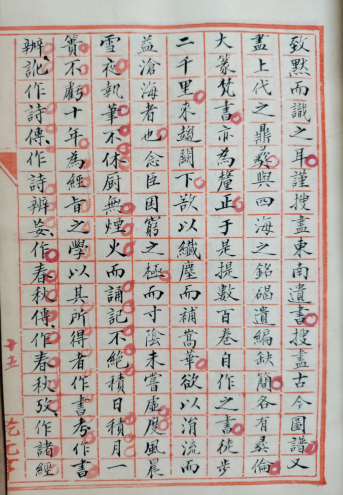 致默而識之耳謹搜盡東南遺書搜盡古今圖譜又
盡上代之鼎彝與四海之銘碣遺編缺簡各有彝倫
大篆梵書亦為釐正于是提數百卷自作之書徒步
二千里來趨闕下欲以纖塵而補嵩華欲以涓流而
益滄海者也念臣困窮之極而寸陰未嘗虛度風晨
雪夜執筆不休厨無煙火而誦記不絶積日積月一
簣不虧十年為經旨之學以其所得者作書考作書
辨訛作詩傳作詩辨妄作春秋傳作春秋攷作諸經
十五